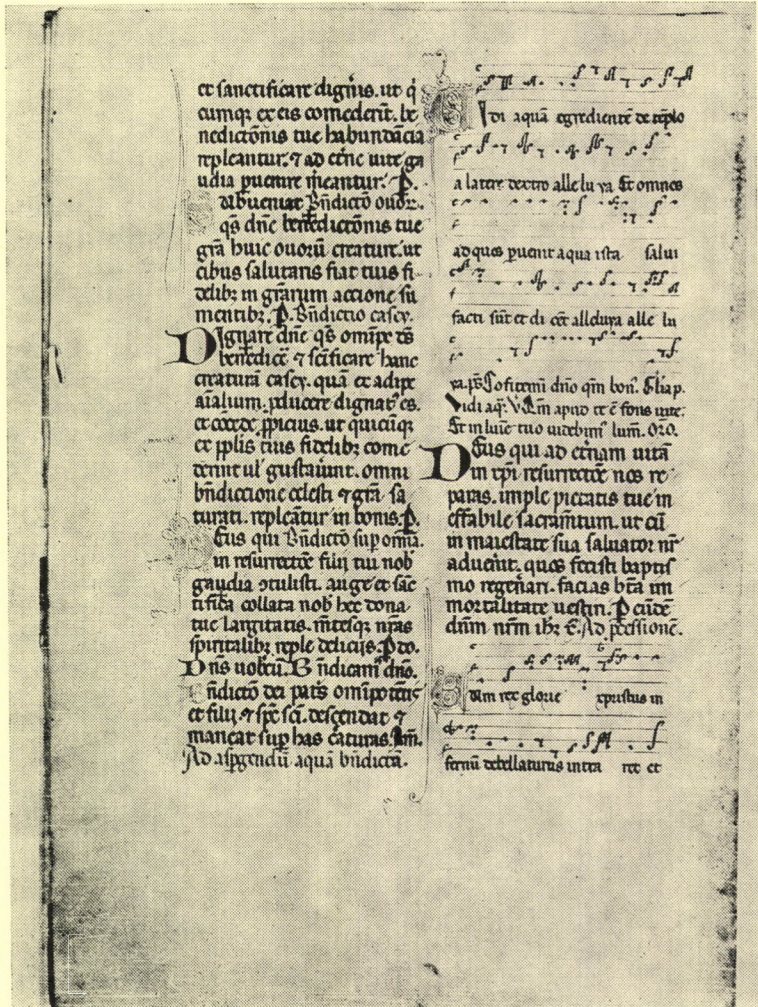 et sanctificare digneris. ut q̇
cumq; ex eis comederīt. be
nedictōnis tue habundācia
repleantur. ⁊ ad etne uite ga
udia puenire meantur. P.
bueniat Bn̄dictō ouor.
qs dn̄e benedictōnis tue
grā huic ouorū creature. ut
cibus salutaris fiat tuis fi
delibȝ in grārum accione su
mentibȝ. P. Bn̄dictio casey.
Dignare dn̄e qs omīpe ds
benedice ⁊ scīficare hanc
creaturā casey. quā ex adipe
aīalium. pducere dignatꝰ es.
et concede. ppicius. ut quicūq;
ex pplis tuis fidelibȝ come
derint ul' gustauīnt. omni
bn̄diccione celesti ⁊ grā. sa
turati. repleātur in bonis. P.
Eus qui Bn̄dictō sup omīa.
in resurrectōe filii tui nob
gaudia ↄtulisti. auge et sāc
tifica collata nob hec dona
tue largitatis. mētesq; nr̄as
spiritalibȝ reple deliciis. P do.
Dns uobcū. Bn̄dicam dn̄o.
ndictō dei patis omīpotētis
et filii. ⁊ spc sci. descendat ⁊
maneat sup has c̄aturas. Am̄.
Ad aspgendū aquā bn̄dictā.
Vidi aquā egredientē de tēplo
a latere dextro alle lu ya Et omnes
ad ques puenit aqua ista salui
facti sūt et di cēt alleluya alle lu
ya. ps̄ Cōfitemī dn̄o qm̄ bonꝰ. Glia p.
Vidi aq̄. V̄ Qm̄ apud te ē fons uite.
Et in luīe tuo uidebimꝰ lum̄. Oro.
Deus qui ad etn̄am uitā
in xpi resurrectōe nos re
paras. imple pietatis tue in
effabile sacram̄tum. ut cū
in maiestate sua saluator nr̄
aduen̄it. quos fecisti baptis
mo regen̄ari. facias bt̄a im
mortalitate uestiri. P eūdē
dn̄m nr̄m ihȝ x̄. Ad pcessionē.
Cūm rex glorie xpristus in
fernū debellaturus intra ret et